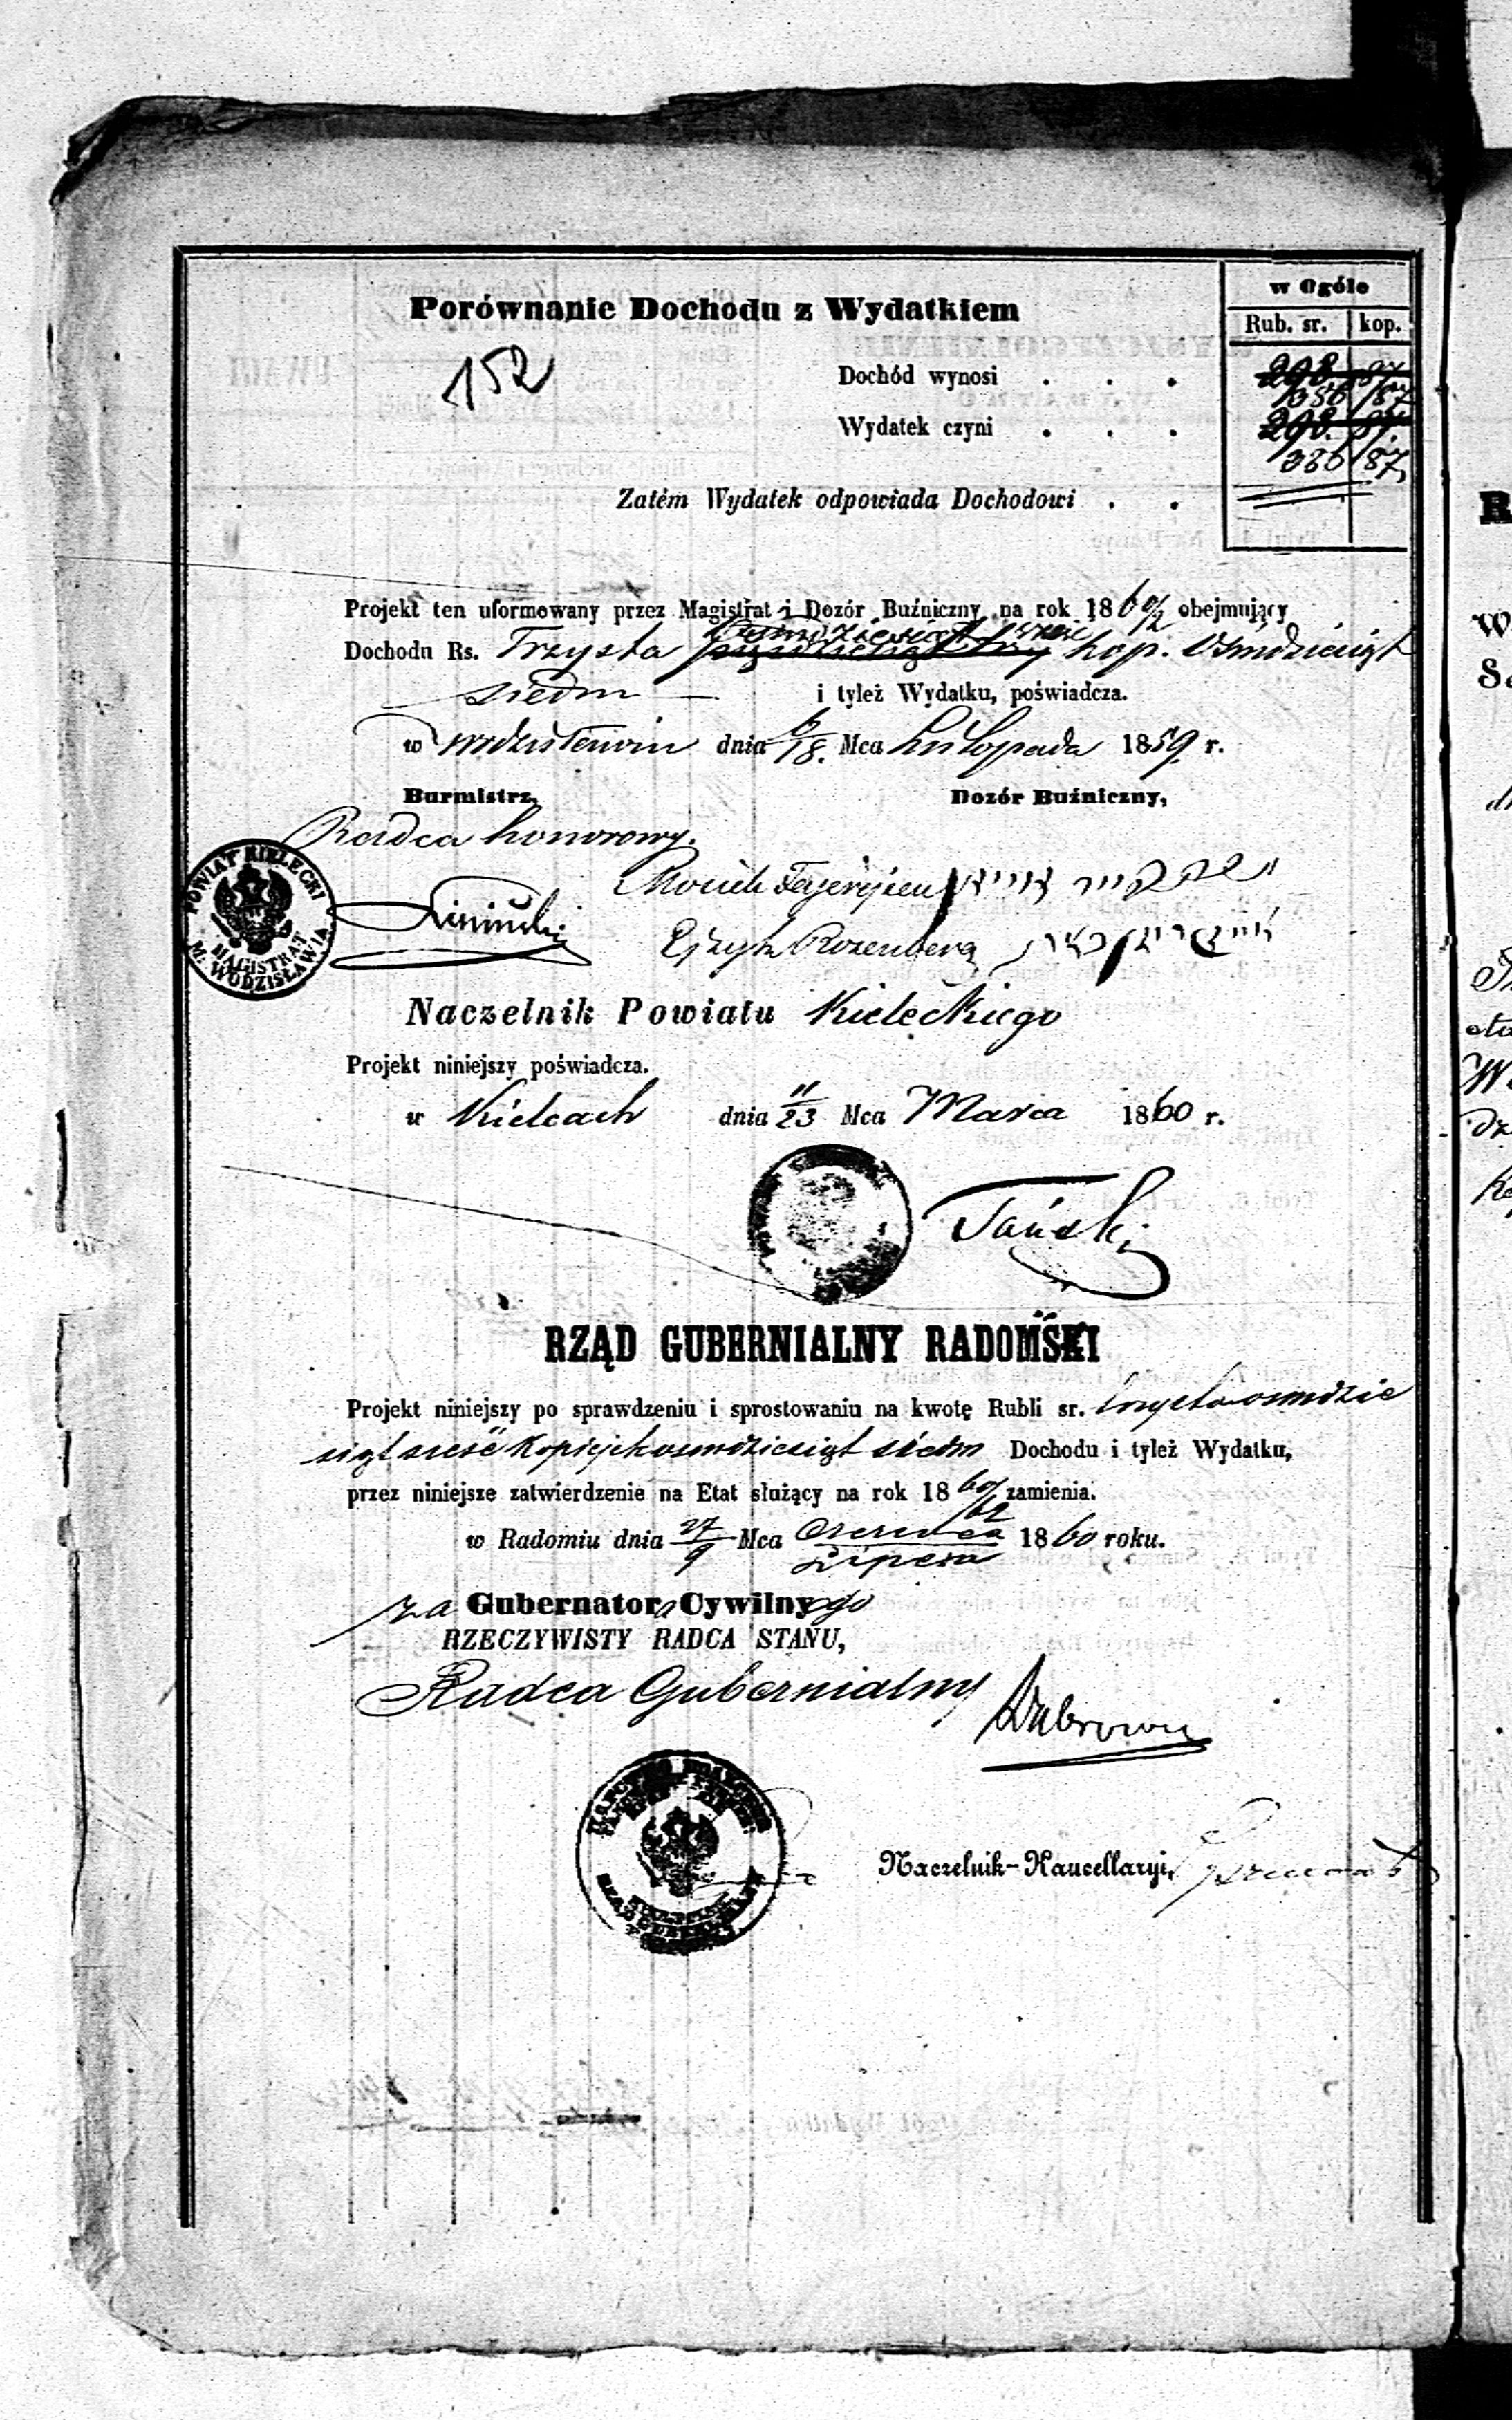 Porównanie Dochodu z Wydatkiem
w Ogóle
Rub. sr. kop.
152
Dochód wynosi . . . 298 87
386 87
Wydatek czyni . . . 298. 87.
386 87
Zatém Wydatek odpowiada Dochodowi . .
Projekt ten uformowany przez Magistrat i Dozór Buźniczny na rok 1860/2 obejmujący
ośmdziesiąt sześć
Dochodu Rs. Trzysta kop. ośmdziesiąt
siedm — i tyleż Wydatku, poświadcza.
w Wodzisławiu dnia 6/18. Mca Listopada 1859. r.
Burmistrz, Dozór Buźniczny,
Radca honorowy.
POWIAT KIELECKI
MAGISTRAT
M. WODZISŁAWIA
Rozenberg
Naczelnik Powiatu Kieleckiego
Projekt niniejszy poświadcza.
w Kielcach dnia 11/23 Mca Marca 1860 r.
Tański
RZĄD GUBERNIALNY RADOMSKI
Projekt niniejszy po sprawdzeniu i sprostowaniu na kwotę Rubli sr. trzysta osmdzie
siąt sześć Kopiejek osmdziesiąt siedm Dochodu i tyleż Wydatku,
przez niniejsze zatwierdzenie na Etat służący na rok 1860/62 zamienia.
w Radomiu dnia 27/9 Mca Czerwca/Lipca 1860 roku.
za Gubernatora Cywilnego
RZECZYWISTY RADCA STANU,
Radca Gubernialny
Naczelnik-Kancellaryi,